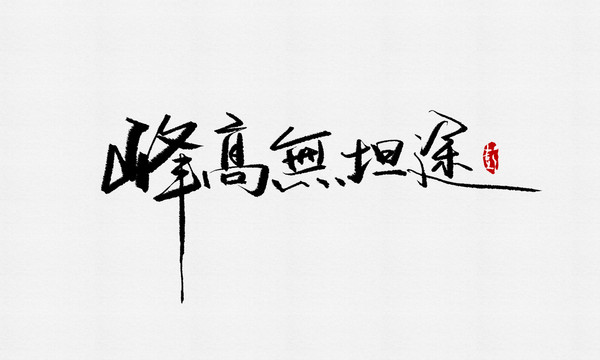 峰高無坦途